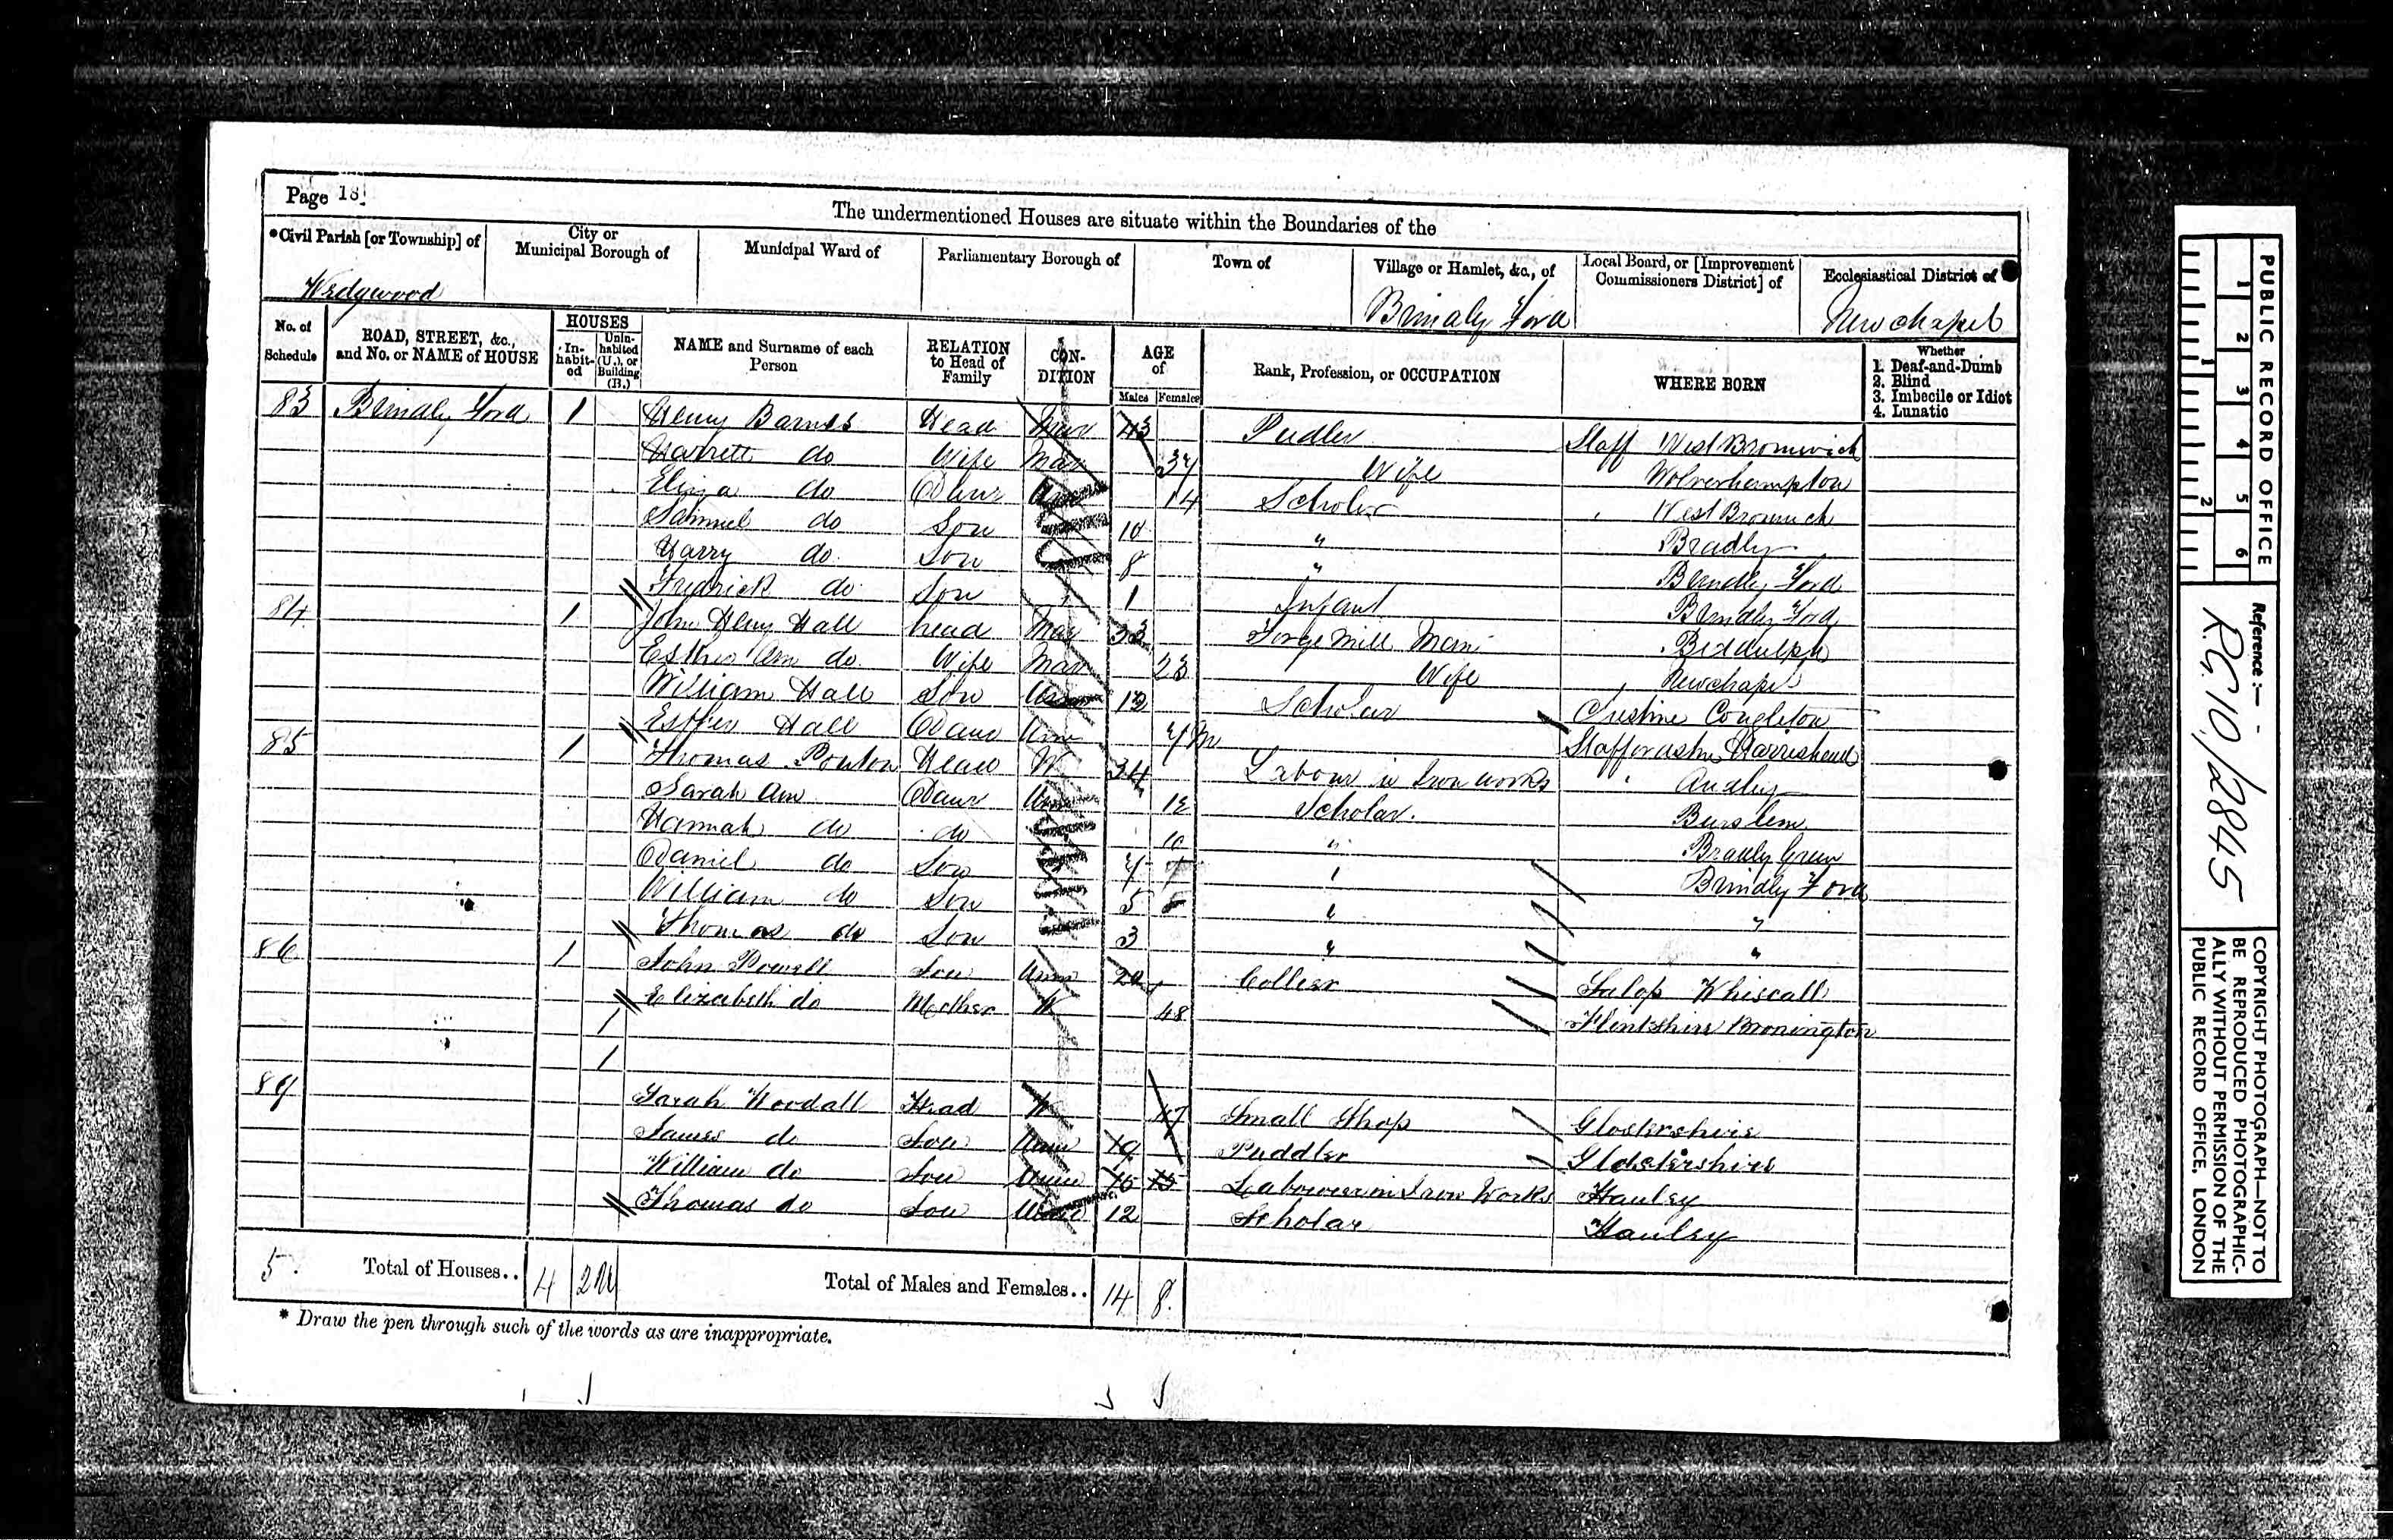 Page 18
The undermentioned Houses are situate within the Boundaries of the
*Civil Parish [or Township] of
City or Municipal Borough of
Municipal Ward of
Parliamentary Borough of
Town of
Village or Hamlet, &c., of
Local Board, or [Improvement Commissioners District] of
Ecclesiastical District of
Wedgwood
Brindly Ford
Newchapel
No. of Schedule
ROAD, STREET, &c., and No. or NAME of HOUSE
HOUSES
In-habit-ed
Unin-habited (U.), or Building (B.)
NAME and Surname of each Person
RELATION to Head of Family
CON-DITION
AGE of
Males Females
Rank, Profession, or OCCUPATION
WHERE BORN
Whether
1. Deaf-and-Dumb
2. Blind
3. Imbecile or Idiot
4. Lunatic
83 Brindly Ford 1 Henry Barnes Head Mar 43 Pudler Staff West Bromwich
Harrett do Wife Mar 37 Wife Wolverhampton
Eliza do Daur 14 Scholer West Bromich
Samuel do Son 10 " Bradly
Harry do Son 8 " Brindly Ford
Fredrick do Son 1 Infant Brindly Ford
84 1 John Henry Hall head Mar 23 Forge Mill Man Biddulph
Esther Ann do Wife Mar 23 Wife Newchapel
William Hall Son Scholar Congleton
Esther Hall Daur Unm 7 M Staffordshire Harrishead
85 1 Thomas Poulton Head W 34 Labour in Iron works Audley
Sarah Ann Daur Unm 12 Scholar Burslem
Hannah do do 10 " Bradly Green
Daniel do Son 7 7 " Brindly Ford
William do Son 5 5 " "
Thomas do Son 3 " "
86 1 John Powell Son Unm 20 Collier Salop Whiscall
Elizabeth do Mother W 48 Flintshire Bronington
1
1
89 Sarah Woodall Head W 47 Small Shop Glostershire
James do Son Unm 19 Puddler Glostershire
William do Son Unm 15 15 Labourer in Iron Works Hanley
Thomas do Son 12 Scholar Hanley
5 Total of Houses.. 4 2 U Total of Males and Females.. 14 8
* Draw the pen through such of the words as are inappropriate.
PUBLIC RECORD OFFICE
1 2 3 4 5 6
1 2
Reference :—
R.G. 10/2845
COPYRIGHT PHOTOGRAPH—NOT TO BE REPRODUCED PHOTOGRAPHIC-ALLY WITHOUT PERMISSION OF THE PUBLIC RECORD OFFICE, LONDON